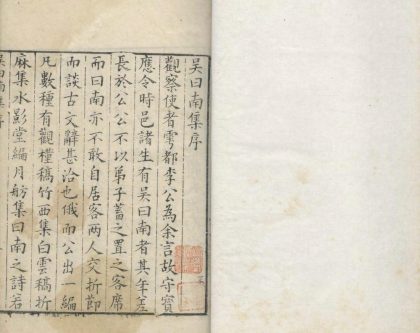 吳曰南集序
觀察使者雩都李公為余言故守寶
應令時邑諸生有吳曰南者其年差
長於公公不以弟子蓄之置之客席
而曰南亦不敢自居客兩人交折節
而談古文辭甚洽也俄而公出一編
凡數種有觀槿稿竹西集白雲稿折
麻集水影堂編月舫集曰南之詩若
吳曰南集序